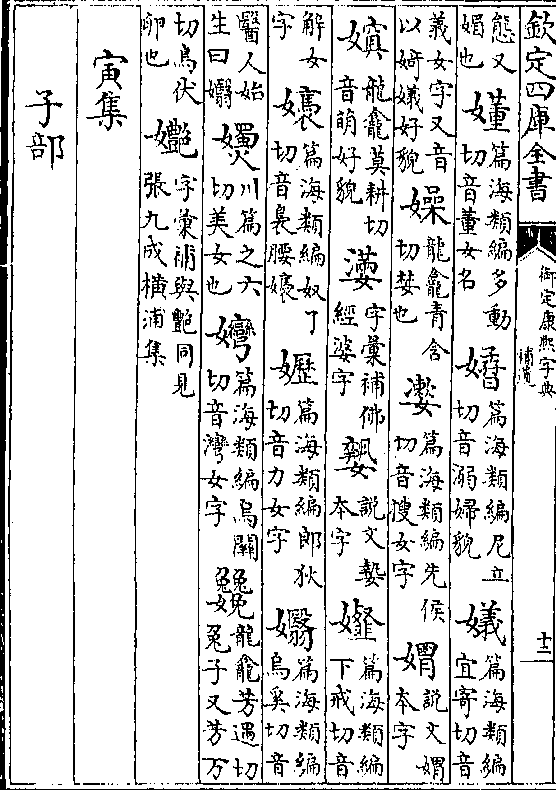 欽定四庫全書
御定康熙字典
補遺
十二
態又媚也 㜼 篇海類編多動切音董女名 篇海類編尼立切音溺婦貌 㼁 篇海類編宜寄切音
義女字又音以婍㼁好貌 龍龕青含切婪也 篇海類編先侯切音㛐女字 媦 說文媦本字
龍龕莫耕切音萌好貌 字彙補佛經婆字 說文嫯本字 篇海類編下戒切音
解女字 嬝 篇海類編奴了切音裊腰嬝 篇海類編郎狄切音力女字 篇海類編烏奚切音
醫人始生曰嫛 川篇之六切美女也 篇海類編烏關切音灣女字 龍龕芳遇切兔子又芳万
切鳥伏卵也 字彙補與艷同見張九成橫浦集
寅集
子部